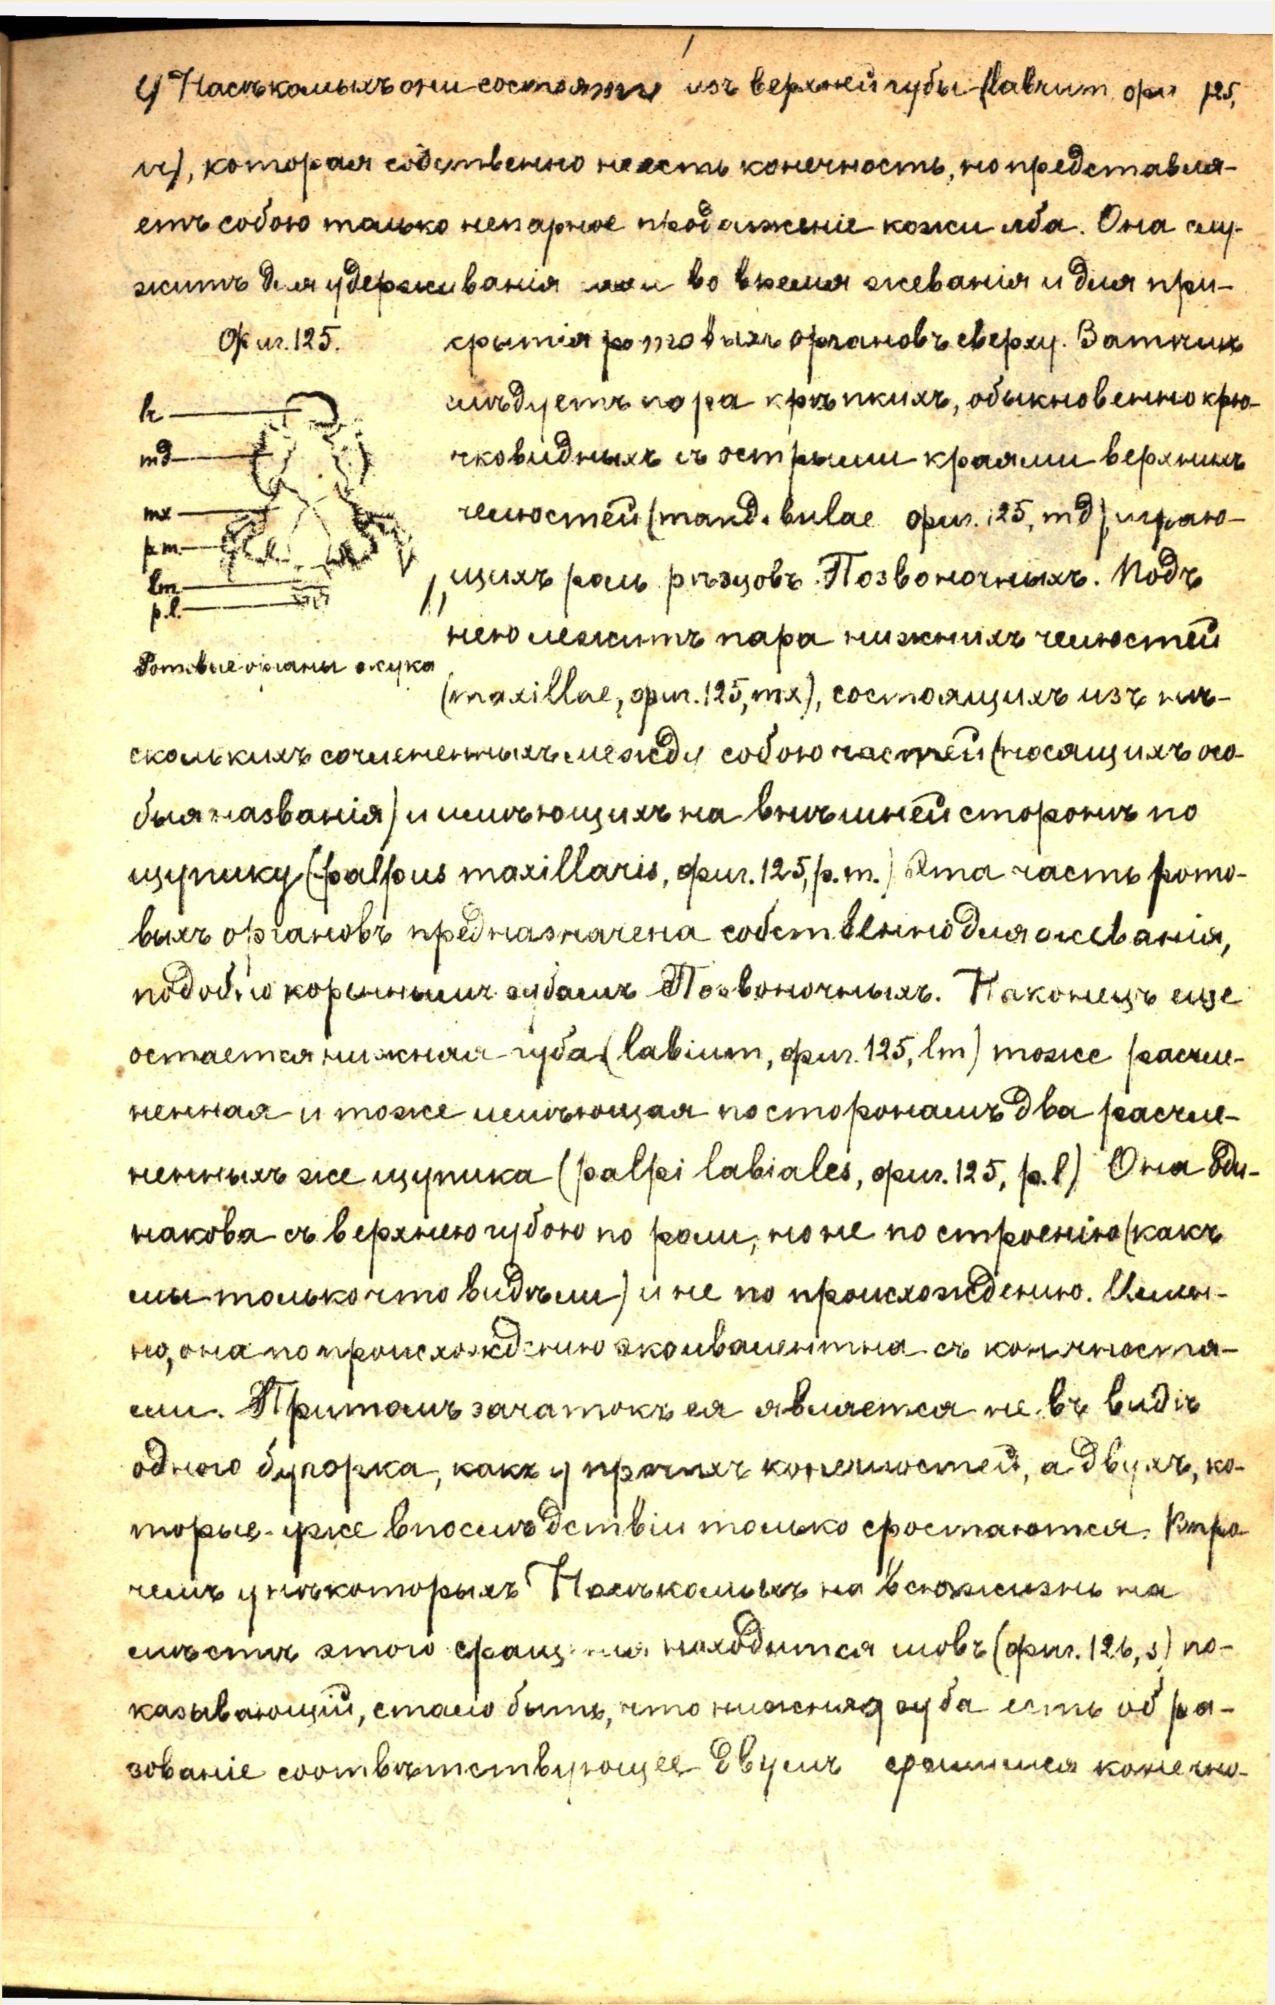 У Насѣкомыхъ они состоятъ изъ верхней губы (labrum фиг 125,
lr), которая собственно не есть конечность, но представля-
етъ собою только непарное продолженіе кожи лба. Она слу-
житъ для удерживанія пищи во время жеванія и для при-
Фиг. 125.
крытія ротовыхъ органовъ сверху. Затѣмъ
слѣдуетъ пара крѣпкихъ, обыкновенно крю-
чковидныхъ съ острыми краями верхнихъ
челюстей (mandibulae фиг. 125, md), играю-
щихъ роль рѣзцовъ Позвоночныхъ. Подъ
нею лежитъ пара нижнихъ челюстей
(maxillae, фиг. 125, mx), состоящихъ изъ нѣ-
lr
md
mx
pm
lm
p.l.
Ротовые органы жука
сколькихъ сочлененныхъ между собою частей (носящихъ осо-
быя названія) и имѣющихъ на внѣшней сторонѣ по
щупику (palpus maxillaris, фиг. 125, p.m.) Эта часть рото-
выхъ органовъ предназначена собственно для жеванія,
подобно кореннымъ зубамъ Позвоночныхъ. Наконецъ еще
остается нижняя губа (labium, фиг. 125, lm) тоже расчле-
ненная и тоже имѣющая по сторонамъ два расчле-
ненныхъ же щупика (palpi labiales, фиг. 125, p.l) Она оди-
накова съ верхнею губою по роли, но не по строенію (какъ
мы только что видѣли) и не по происхожденію. Имен-
но, она по происхожденію эквивалентна съ конечностя-
ми. Притомъ зачатокъ ея является не въ видѣ
одного бугорка, какъ у прочихъ конечностей, а двухъ, ко-
торые уже впослѣдствіи только сростаются. Впро-
чемъ у нѣкоторыхъ Насѣкомыхъ на всю жизнь на
мѣстѣ этого сращенія находится шовъ (фиг. 126, s) по-
казывающій, стало быть, что нижняя губа есть обра-
зованіе соотвѣтствующее двумъ сросшимся конечно-